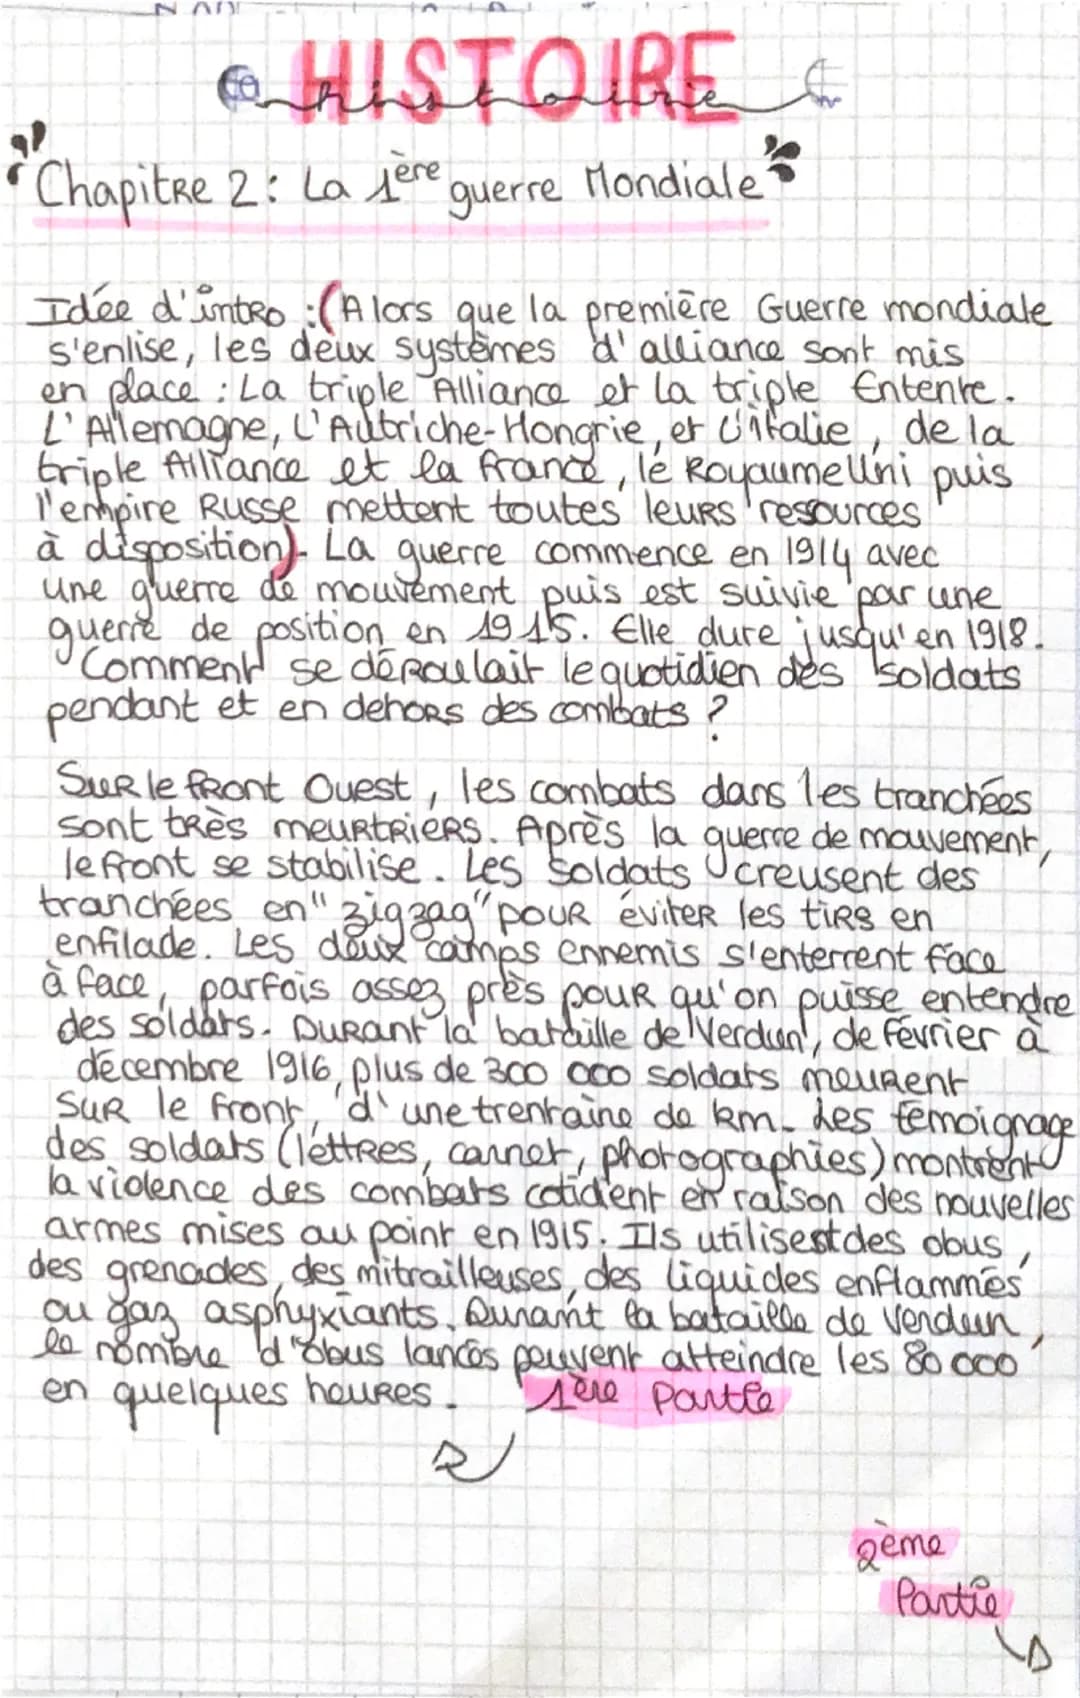 HISTOIRE
histoire
Chapitre 2 : La 1ère guerre Mondiale
Idée d'intro : (Alors que la première Guerre mondiale
s'enlise, les deux systèmes d'alliance sont mis
en place : La triple Alliance et la triple Entente.
L'Allemagne, L'Autriche-Hongrie, et L'italie, de la
triple Alliance et la France, le Royaume Uni puis
l'empire Russe mettent toutes leurs ressources
à disposition). La guerre commence en 1914 avec
une guerre de mouvement puis est suivie par une
guerre de position en 1915. Elle dure jusqu'en 1918.
Comment se déroulait le quotidien des soldats
pendant et en dehors des combats ?
Sur le front Ouest, les combats dans les tranchées
sont très meurtriers. Après la guerre de mouvement,
le front se stabilise. Les soldats creusent des
tranchées en "zigzag" pour éviter les tirs en
enfilade. Les deux camps ennemis s'enterrent face
à face, parfois assez près pour qu'on puisse entendre
des soldats. Durant la bataille de Verdun, de Février à
décembre 1916, plus de 300 000 soldats meurent
sur le front, d'une trentaine de km. Les témoignage
des soldats (lettres, carnet, photographies) montrent
la violence des combats cotident en raison des nouvelles
armes mises au point en 1915. Ils utilisent des obus,
des grenades, des mitrailleuses, des liquides enflammés
ou gaz asphyxiants. Durant la bataille de Verdun,
le nombre d'obus lancés peuvent atteindre les 80 000
en quelques heures. 1ère Partie
2ème
Partie